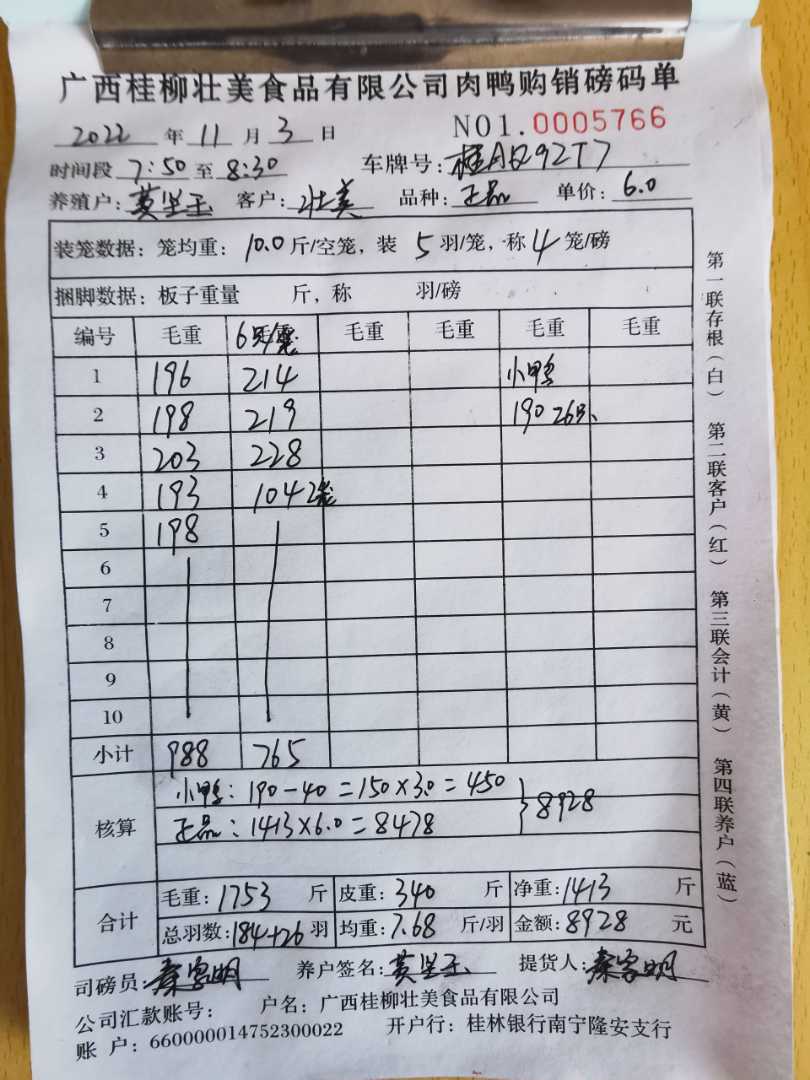 广西桂柳壮美食品有限公司肉鸭购销磅码单
2022 年 11 月 3 日 NO1.0005766
时间段 7:50 至 8:30 车牌号: 桂AQ92T7
养殖户: 黄坚玉 客户: 壮美 品种: 正品 单价: 6.0
装笼数据: 笼均重: 10.0 斤/空笼, 装 5 羽/笼, 称 4 笼/磅
捆脚数据: 板子重量 斤, 称 羽/磅
编号 毛重 6只/笼 毛重 毛重 毛重 毛重
1 196 214 小鸭
2 198 219 190 26只
3 203 228
4 193 104 2笼
5 198
6
7
8
9
10
小计 988 765
核算 小鸭: 190-40=150×3.0=450
正品: 1413×6.0=8478 }8928
合计 毛重: 1753 斤 皮重: 340 斤 净重: 1413 斤
总羽数: 184+26 羽 均重: 7.68 斤/羽 金额: 8928 元
司磅员: 秦家明 养户签名: 黄坚玉 提货人: 秦家明
公司汇款账号: 户名: 广西桂柳壮美食品有限公司
账 户: 660000014752300022 开户行: 桂林银行南宁隆安支行
第一联存根(白) 第二联客户(红) 第三联会计(黄) 第四联养户(蓝)